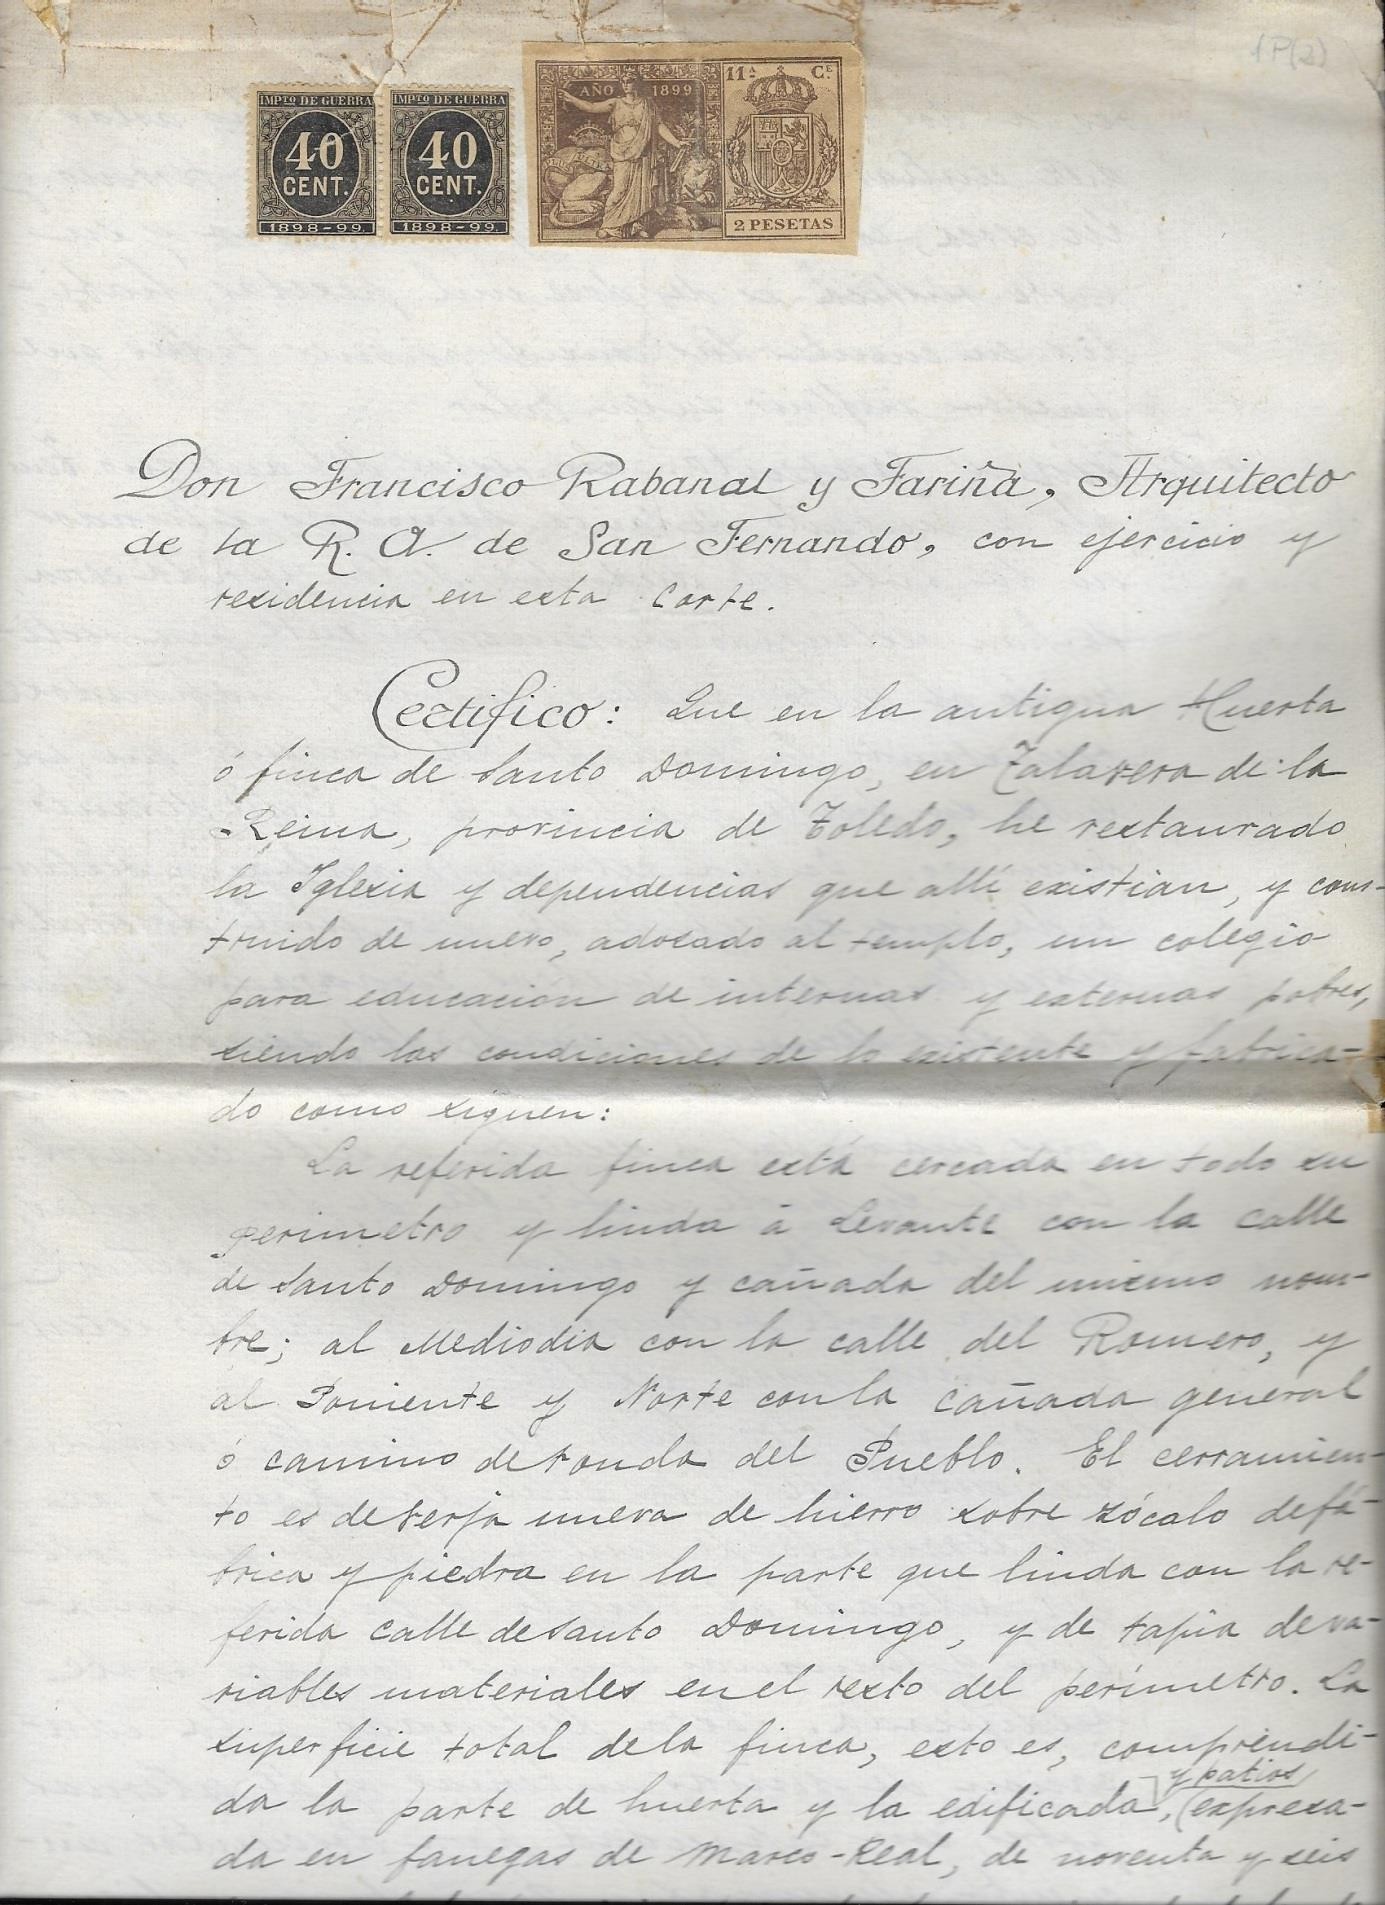 1P(2)
IMPTO DE GUERRA
40
CENT.
1898-99.
IMPTO DE GUERRA
40
CENT.
1898-99.
AÑO 1899
11A CE
2 PESETAS
Don Francisco Rabanal y Fariña, Arquitecto
de la R. A. de San Fernando, con ejercicio y
residencia en esta Corte.
Certifico: Que en la antigua Huerta
ó finca de Santo Domingo, en Talavera de la
Reina, provincia de Toledo, he restaurado
la Iglesia y dependencias que allí existian, y cons-
truido de nuevo, adosado al templo, un colegio
para educación de internas y externas pobres,
siendo las condiciones de lo existente y fabrica-
do como siguen:
La referida finca está cercada en todo su
perimetro y linda á Levante con la calle
de Santo Domingo y cañada del mismo nom-
bre; al Mediodia con la calle del Romero, y
al Poniente y Norte con la cañada general
ó camino de ronda del Pueblo. El cerramien-
to es de verja nueva de hierro sobre zócalo de fá-
brica y piedra en la parte que linda con la re-
ferida calle de Santo Domingo, y de tapia de va-
riables materiales en el resto del perímetro. La
superficie total de la finca, esto es, comprendi-
da la parte de huerta y la edificada, y patios (expresa-
da en fanegas de Marco-Real, de noventa y seis